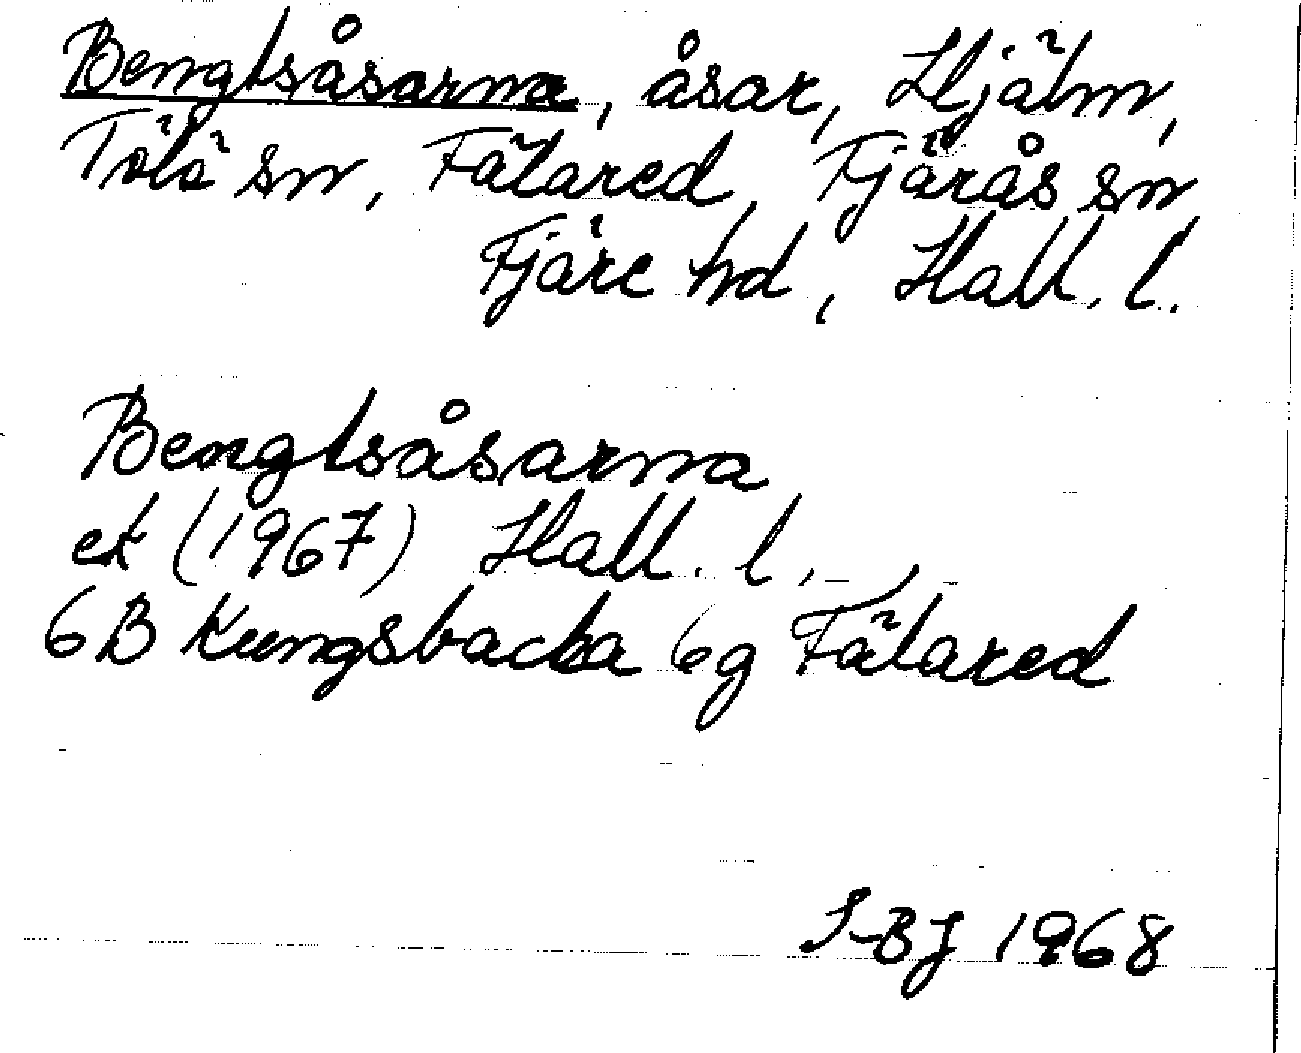 Bengtsåsarna, åsar, Hjälm,
Tölö sn, Fälared, Fjärås sn
Fjäre hd, Hall. l.
Bengtsåsarna
ek (1967) Hall. l.
6B Kungsbacka 6g Fälared
S-BJ 1968